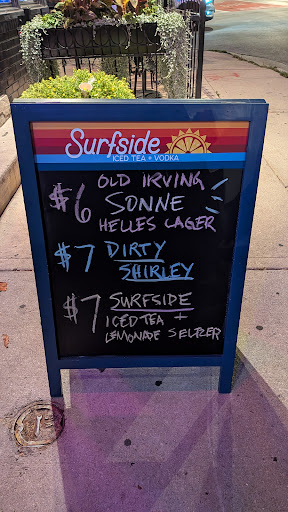 Surfside
ICED TEA + VODKA
$6 OLD IRVING
SONNE
HELLES LAGER
$7 DIRTY
SHIRLEY
$7 SURFSIDE
ICED TEA +
LEMONADE SELTZER